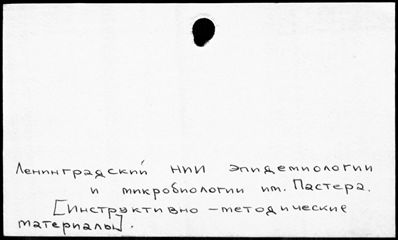 Ленинградский НИИ эпидемиологии
и микробиологии им. Пастера.
[Инструктивно-методические
материалы].